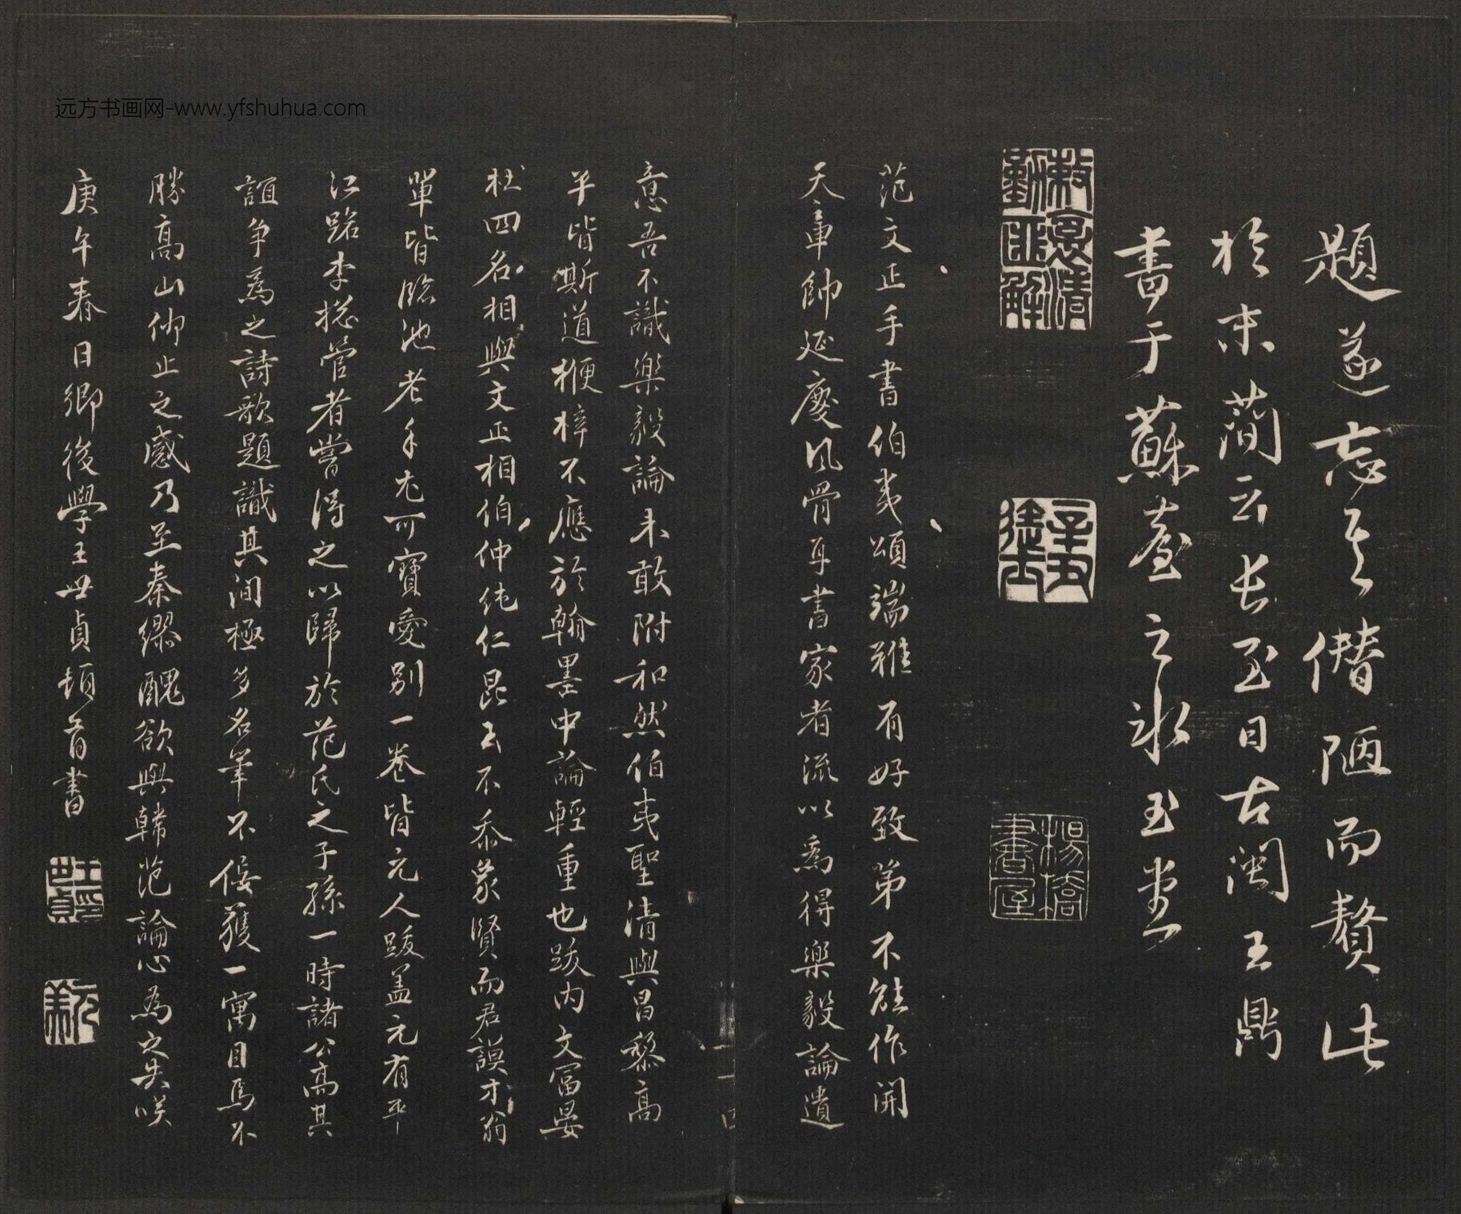 題遂忘其僭陋而贅此
於末簡云長至日古閩王鼎
書于蘇臺之冰玉堂
楊橋書屋
范文正手書伯夷頌端雅有好致第不能作開
天軍帥延慶風骨耳書家者流以爲得樂毅論遺
意吾不識樂毅論未敢附和然伯夷聖清與昌黎高
平皆斯道楩梓不應於翰墨中論輕重也跋內文富晏
杜四名相與文正相伯仲純仁昆玉不忝象賢而君謨才翁
單皆臨池老手尤可寶愛別一卷皆元人跋蓋元有平
江路李摠管者嘗得之以歸於范氏之子孫一時諸公高其
誼爭為之詩歌題識其間極多名筆不佞獲一寓目焉不
勝高山仰止之感乃至秦繆醜欲與韓范論心為之失咲
庚午春日鄉後學王世貞頓首書
远方书画网-www.yfshuhua.com